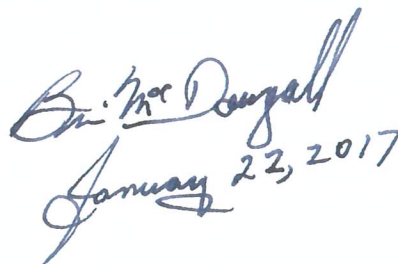 McDougall
January 22, 2017